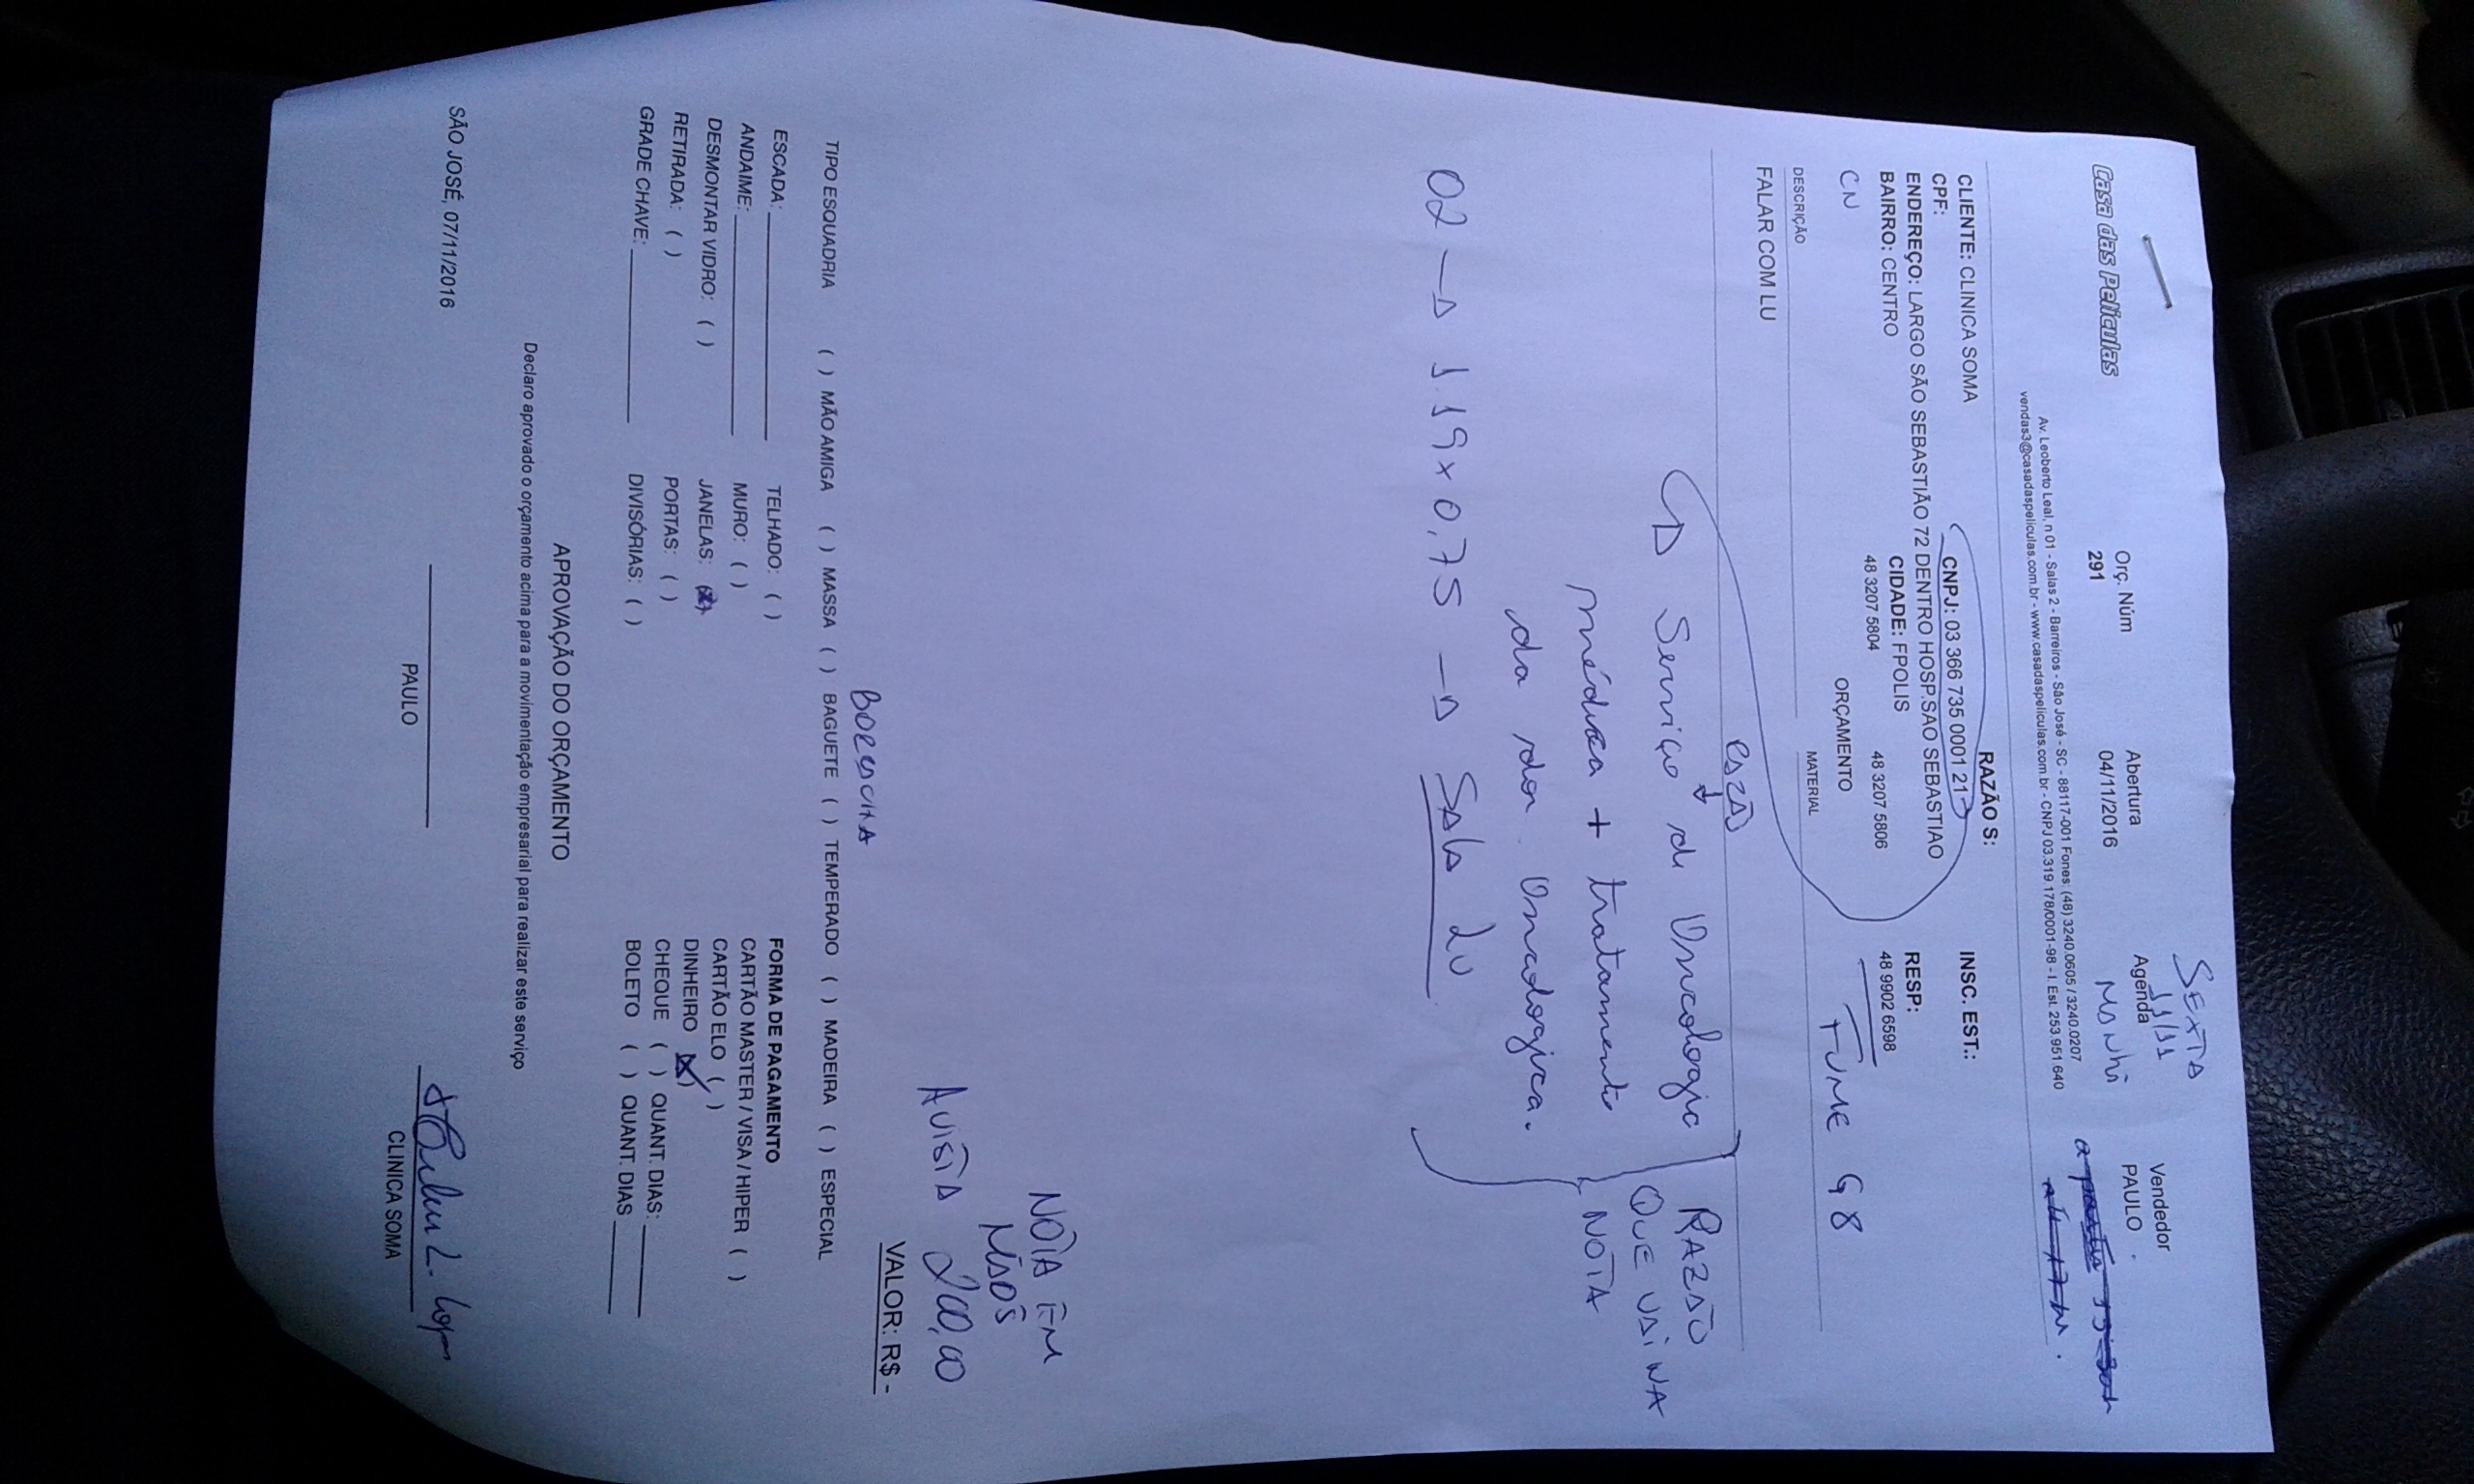 SEXTA
11/11
Casa das Peliculas
Orç. Núm
291
Abertura
04/11/2016
Agenda
MANHÃ
Vendedor
PAULO
a partir 13:30h
Av. Leoberto Leal, n 01 - Salas 2 - Barreiros - São José - SC - 88117-001 Fones: (48) 3240.0605 / 3240.0207
vendas3@casadaspeliculas.com.br - www.casadaspeliculas.com.br - CNPJ 03.319.178/0001-98 - I. Est. 253.951.640
RAZÃO S:
CLIENTE: CLINICA SOMA
INSC. EST.:
CPF:
CNPJ: 03 366 735 0001 21
ENDEREÇO: LARGO SÃO SEBASTIÃO 72 DENTRO HOSP.SAO SEBASTIAO
RESP:
BAIRRO: CENTRO
CIDADE: FPOLIS
48 3207 5804
48 3207 5806
48 9902 6598
CN
ORÇAMENTO
FUME G8
DESCRIÇÃO
MATERIAL
FALAR COM LU
Serviço de Oncologia
médica + tratamento
da dor Oncologica.
RAZÃO
QUE VAI NA
NOTA
02 → 1.19 x 0,75 → SALA 20
NOTA EM
MÃOS
AVISTA 200,00
VALOR: R$ -
BORRACHA
TIPO ESQUADRIA ( ) MÃO AMIGA ( ) MASSA ( ) BAGUETE ( ) TEMPERADO ( ) MADEIRA ( ) ESPECIAL
ESCADA:
TELHADO: ( )
FORMA DE PAGAMENTO
ANDAIME:
MURO: ( )
CARTÃO MASTER / VISA / HIPER ( )
DESMONTAR VIDRO: ( )
JANELAS: (X)
CARTÃO ELO ( )
RETIRADA: ( )
PORTAS: ( )
DINHEIRO (X)
GRADE CHAVE:
DIVISÓRIAS: ( )
CHEQUE ( ) QUANT. DIAS:
BOLETO ( ) QUANT. DIAS
APROVAÇÃO DO ORÇAMENTO
Declaro aprovado o orçamento acima para a movimentação empresarial para realizar este serviço
SÃO JOSÉ, 07/11/2016
PAULO
CLINICA SOMA